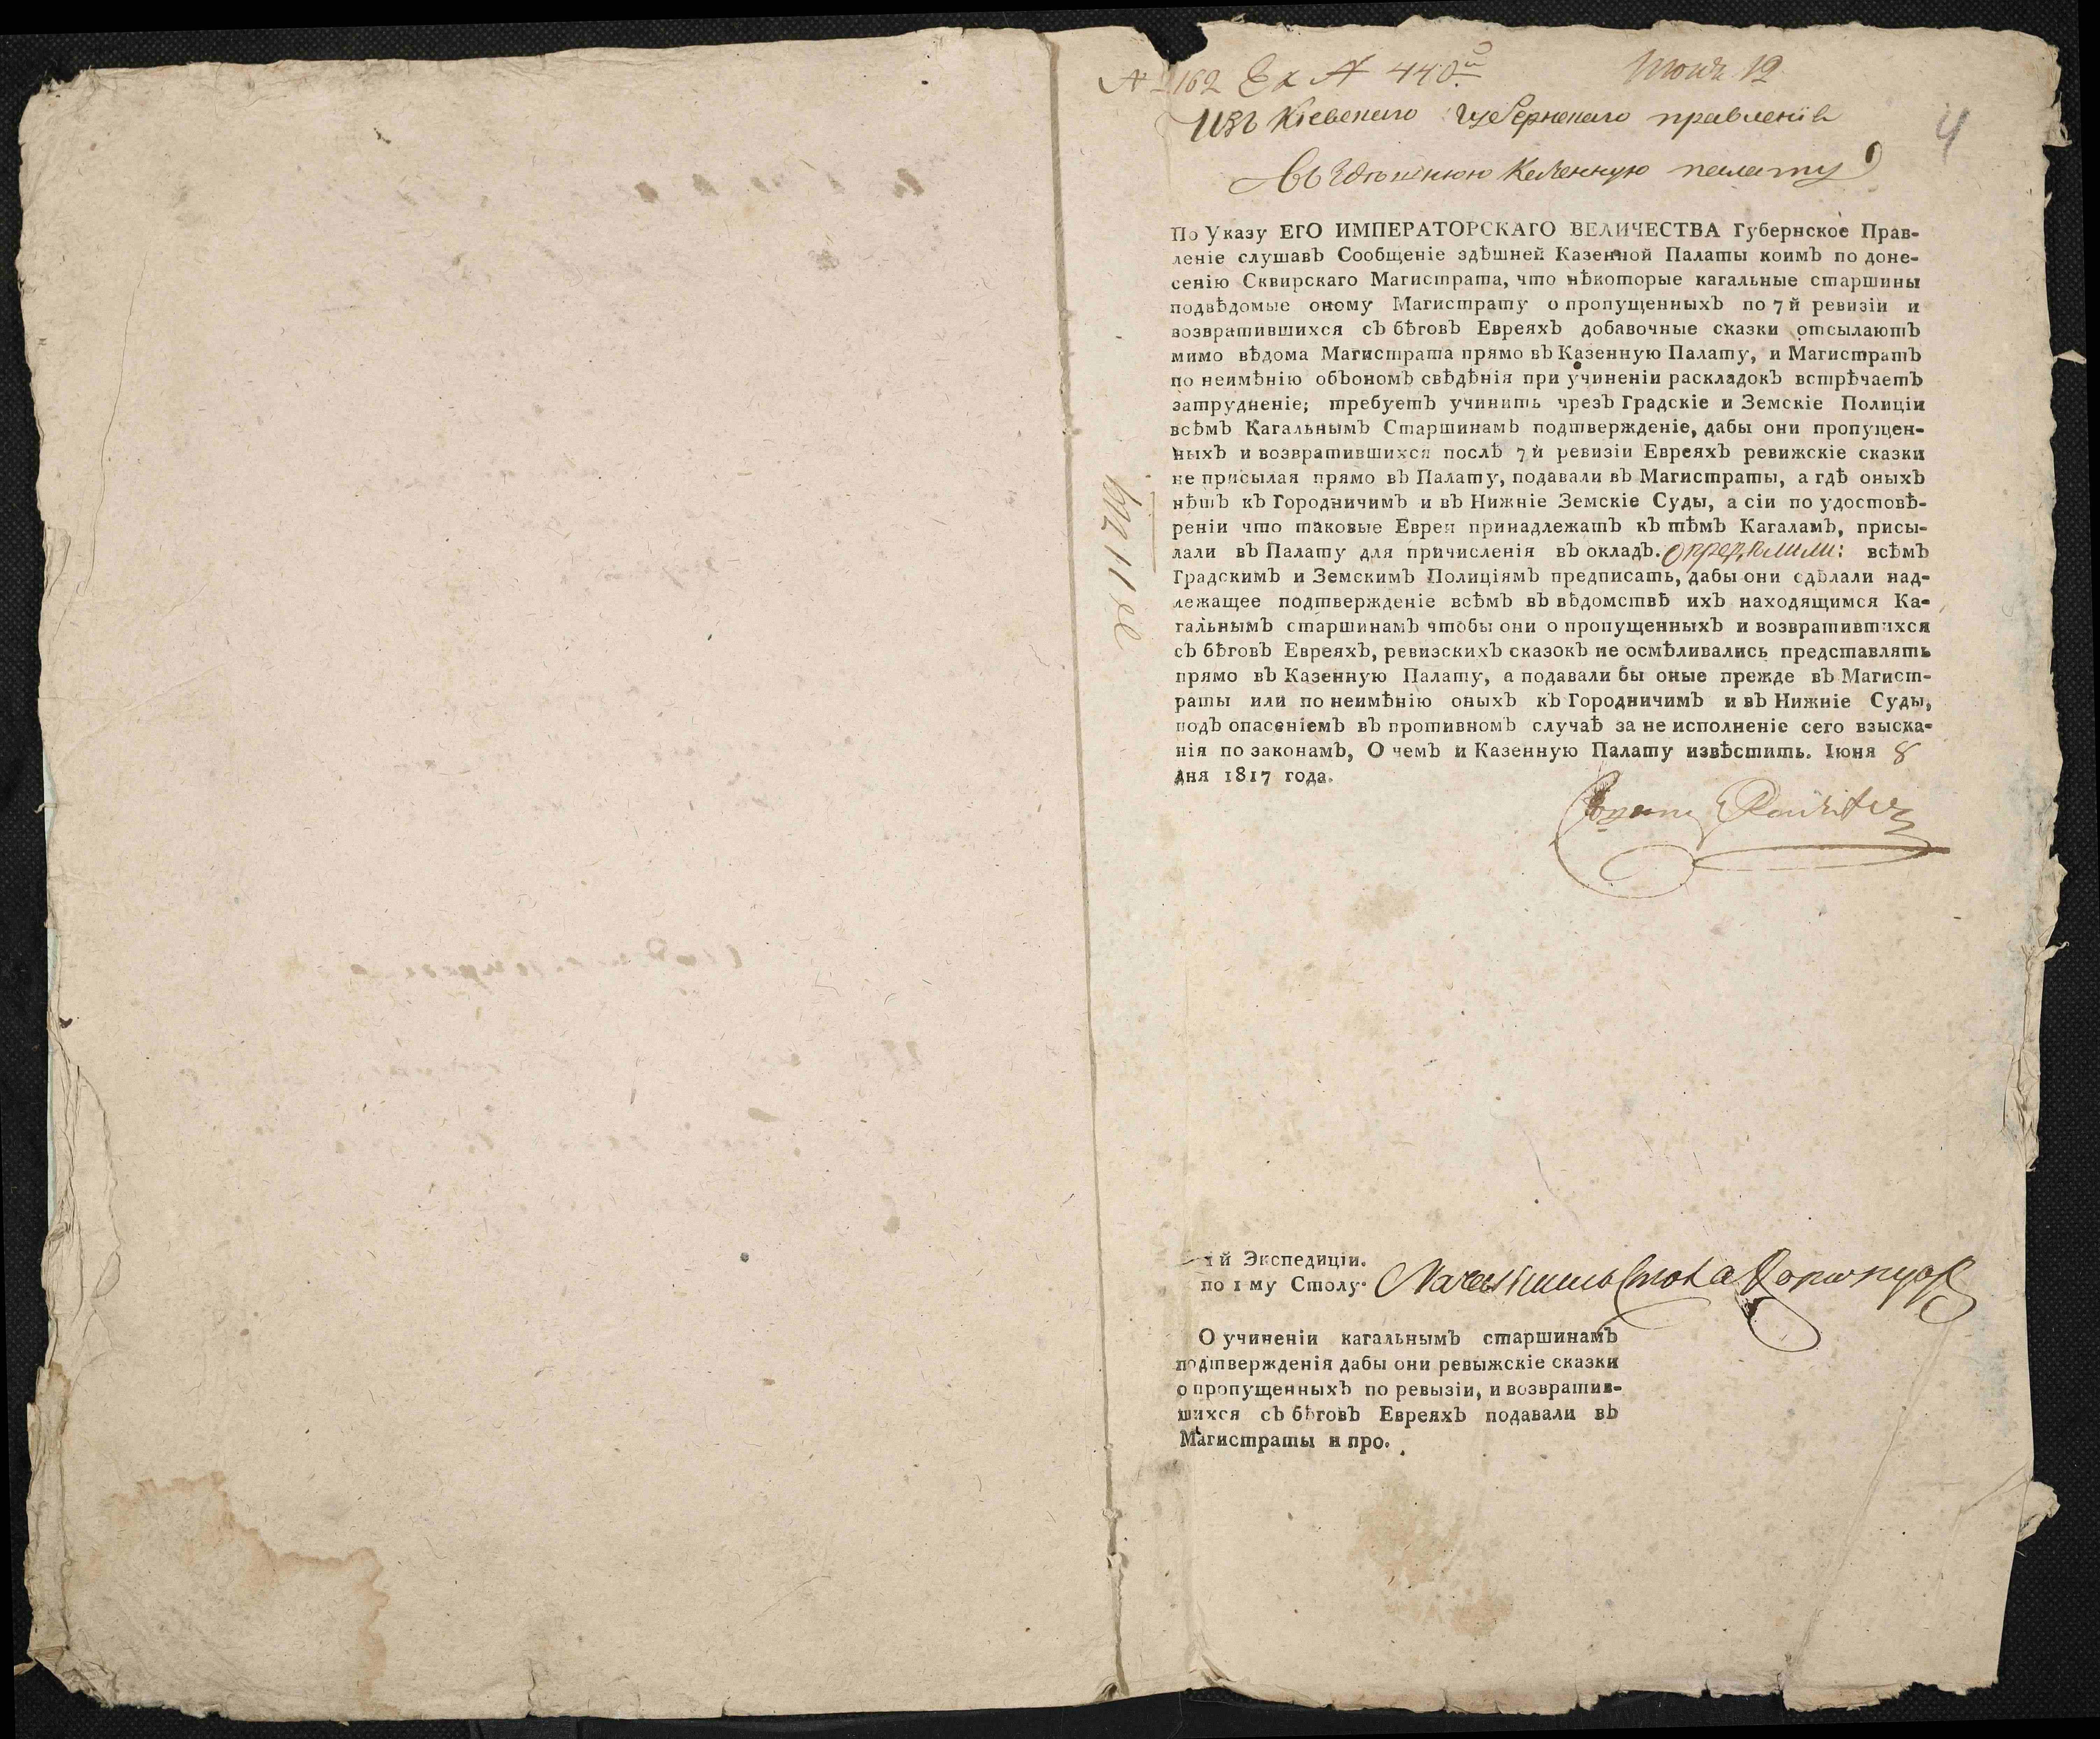 № 162 Ex № 440й Июня 12
Изъ Кіевскаго Губернскаго правленія
4
Въ здѣшнюю Казенную палату
По Указу ЕГО ИМПЕРАТОРСКАГО ВЕЛИЧЕСТВА Губернское Прав-
леніе слушавъ Сообщеніе здѣшней Казенной Палаты коимъ по доне-
сенію Сквирскаго Магистрата, что нѣкоторые кагальные старшины
подвѣдомые оному Магистрату о пропущенныхъ по 7й ревизіи и
возвратившихся съ бѣговъ Евреяхъ добавочные сказки отсылаютъ
мимо вѣдома Магистрата прямо въ Казенную Палату, и Магистратъ
по неимѣнію объономъ свѣдѣнія при учиненіи раскладокъ встрѣчаетъ
затрудненіе; требуетъ учинить чрезъ Градскіе и Земскіе Полиціи
всѣмъ Кагальнымъ Старшинамъ подтвержденіе, дабы они пропущен-
ныхъ и возвратившихся послѣ 7й ревизіи Евреяхъ ревижскіе сказки
не присылая прямо въ Палату, подавали въ Магистраты, а гдѣ оныхъ
нѣтъ къ Городничимъ и въ Нижніе Земскіе Суды, а сіи по удостовѣ-
реніи что таковые Евреи принадлежатъ къ тѣмъ Кагаламъ, присы-
лали въ Палату для причисленія въ окладъ. Опредѣлили: всѣмъ
Градскимъ и Земскимъ Полиціямъ предписать, дабы они сдѣлали над-
лежащее подтвержденіе всѣмъ въ вѣдомствѣ ихъ находящимся Ка-
гальнымъ старшинамъ чтобы они о пропущенныхъ и возвратившихся
съ бѣговъ Евреяхъ, ревизскихъ сказокъ не осмѣливались представлять
прямо въ Казенную Палату, а подавали бы оные прежде въ Магист-
раты или по неимѣнію оныхъ къ Городничимъ и въ Нижніе Суды,
подъ опасеніемъ въ противномъ случаѣ за не исполненіе сего взыска-
нія по законамъ, О чемъ и Казенную Палату извѣстить. Іюня 8
дня 1817 года.
1й Экспедиціи.
по 1 му Столу. Начальникъ Стола
О учиненіи кагальнымъ старшинамъ
подтвержденія дабы они ревыжскіе сказки
о пропущенныхъ по ревызіи, и возвратив-
шихся съ бѣговъ Евреяхъ подавали въ
Магистраты и про.